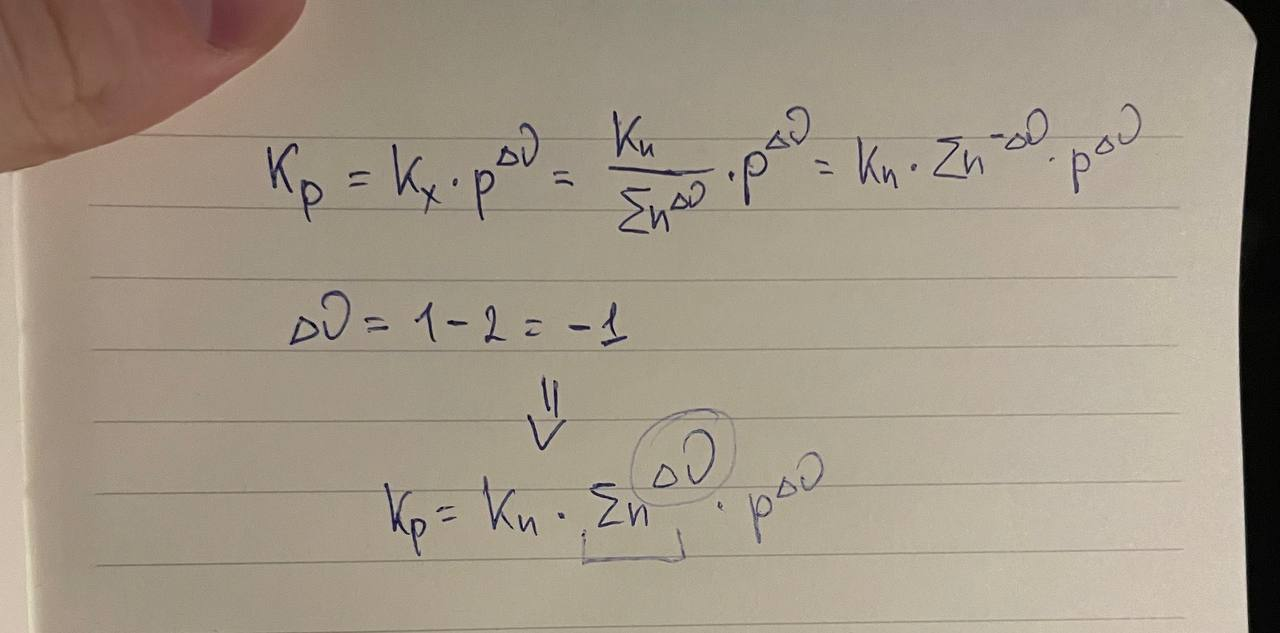 Kp = Kx · p^Δν = Kn / Σn^Δν · p^Δν = Kn · Σn^-Δν · p^Δν
Δν = 1 - 2 = -1
⇓
Kp = Kn · Σn^Δν · p^Δν